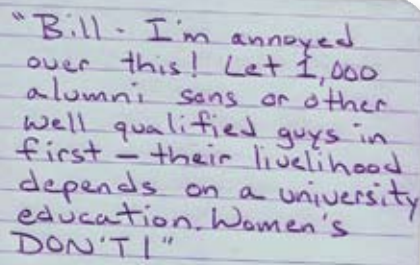 "Bill - I'm annoyed
over this! Let 1,000
alumni sons or other
well qualified guys in
first - their livelihood
depends on a university
education. Women's
DON'T!"